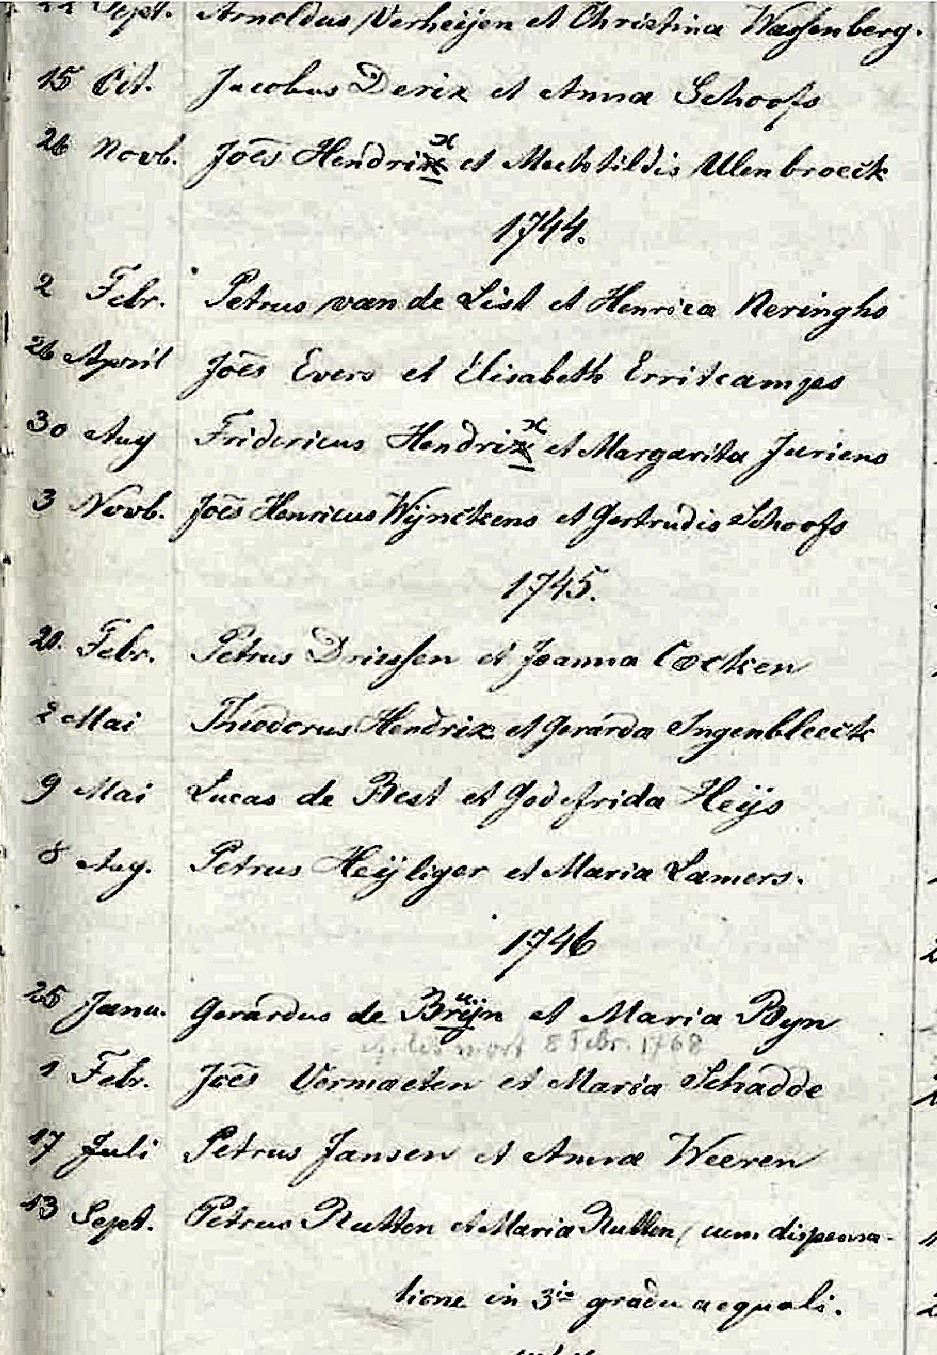 Sept. Arnoldus Verheijen et Christina Wassenberg.
15 Oct. Jacobus Derix et Anna Schoofs
26 Novb. Joēs Hendrix et Mechtildis Ulenbroeck
1744.
2 Febr. Petrus van de List et Henrica Neringhs
26 April Joēs Evers et Elisabeth Erritcamps
30 Aug Fridericus Hendrix et Margarita Juriens
3 Novb. Joēs Henricus Wijnckens et Gertrudis Schoofs
1745.
20. Febr. Petrus Driessen et Joanna Cocken
2 Mai Theodorus Hendrix et Gerarda Ingenbleeck
9 Mai Lucas de Best et Godefrida Heijs
8 Aug. Petrus Heijliger et Maria Lamers.
1746
25 Janu. Gerardus de Brüijn et Maria Byn
mort 8 Febr. 1768
1 Febr. Joēs Vermaeten et Maria Schadde
17 Juli Petrus Jansen et Anna Weeren
13 Sept. Petrus Rutten et Maria Rutten ( cum dispensa-
tione in 3io gradu aequali.